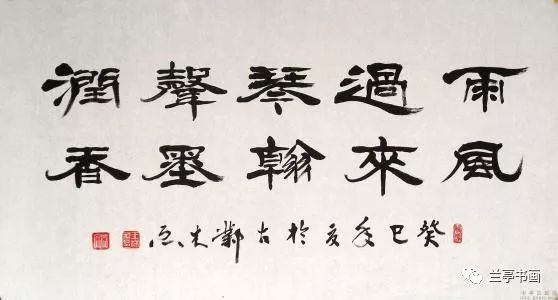 雨過琴聲潤
風來翰墨香
癸巳年夏於古鄴
兰亭书画